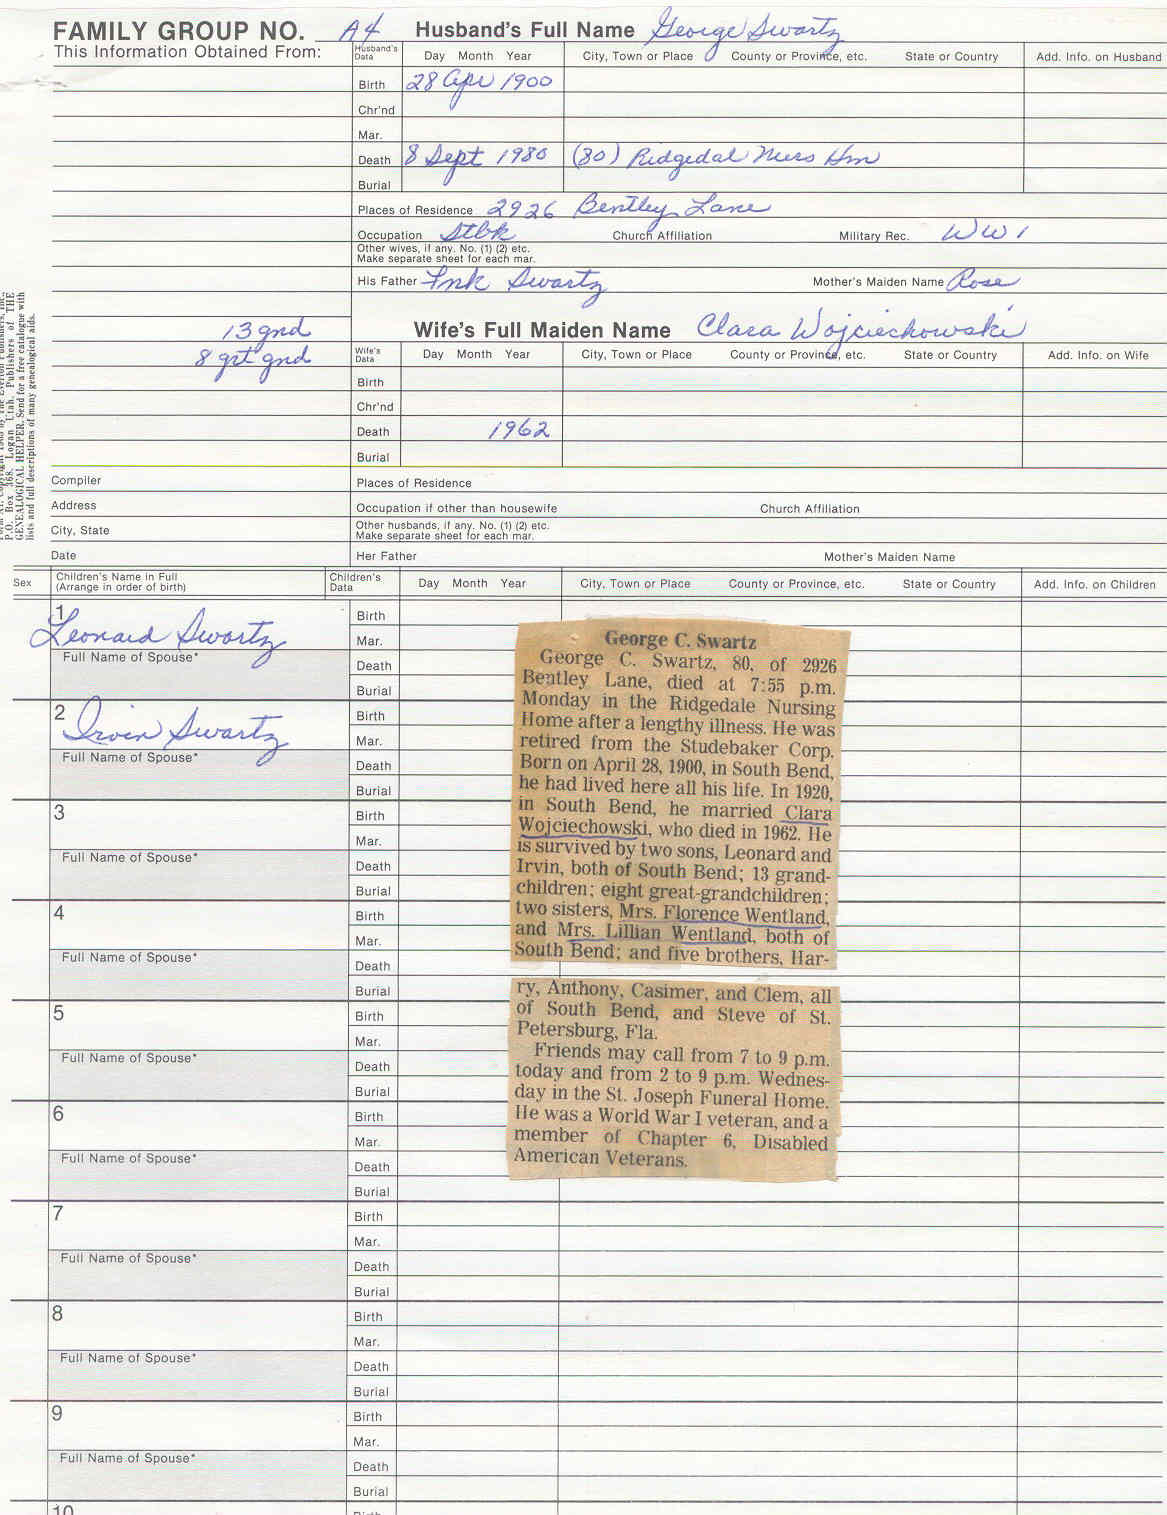 FAMILY GROUP NO. A4 Husband's Full Name George Swartz
This Information Obtained From:
Husband's Data Day Month Year City, Town or Place County or Province, etc. State or Country Add. Info. on Husband
Birth 28 Apr 1900
Chr'nd
Mar.
Death 8 Sept 1980 (80) Ridgedal Nurs Hm
Burial
Places of Residence 2926 Bentley Lane
Occupation Stbk Church Affiliation Military Rec. WW 1
Other wives, if any. No. (1) (2) etc.
Make separate sheet for each mar.
His Father Frnk Swartz Mother's Maiden Name Rose
13 gnd
8 grt gnd
Wife's Full Maiden Name Clara Wojciechowski
Wife's Data Day Month Year City, Town or Place County or Province, etc. State or Country Add. Info. on Wife
Birth
Chr'nd
Death 1962
Burial
P.O. Box 368, Logan Utah, Publishers of THE
GENEALOGICAL HELPER. Send for a free catalogue with
lists and full descriptions of many genealogical aids.
Compiler Places of Residence
Address Occupation if other than housewife Church Affiliation
City, State Other husbands, if any. No. (1) (2) etc.
Make separate sheet for each mar.
Date Her Father Mother's Maiden Name
Sex Children's Name in Full
(Arrange in order of birth) Children's Data Day Month Year City, Town or Place County or Province, etc. State or Country Add. Info. on Children
1 Birth
Leonard Swartz Mar.
Full Name of Spouse* Death
Burial
2 Birth
Irvin Swartz Mar.
Full Name of Spouse* Death
Burial
3 Birth
Mar.
Full Name of Spouse* Death
Burial
4 Birth
Mar.
Full Name of Spouse* Death
Burial
5 Birth
Mar.
Full Name of Spouse* Death
Burial
6 Birth
Mar.
Full Name of Spouse* Death
Burial
7 Birth
Mar.
Full Name of Spouse* Death
Burial
8 Birth
Mar.
Full Name of Spouse* Death
Burial
9 Birth
Mar.
Full Name of Spouse* Death
Burial
10 Birth
George C. Swartz
George C. Swartz, 80, of 2926
Bentley Lane, died at 7:55 p.m.
Monday in the Ridgedale Nursing
Home after a lengthy illness. He was
retired from the Studebaker Corp.
Born on April 28, 1900, in South Bend,
he had lived here all his life. In 1920,
in South Bend, he married Clara
Wojciechowski, who died in 1962. He
is survived by two sons, Leonard and
Irvin, both of South Bend; 13 grand-
children; eight great-grandchildren;
two sisters, Mrs. Florence Wentland,
and Mrs. Lillian Wentland, both of
South Bend; and five brothers, Har-
ry, Anthony, Casimer, and Clem, all
of South Bend, and Steve of St.
Petersburg, Fla.
Friends may call from 7 to 9 p.m.
today and from 2 to 9 p.m. Wednes-
day in the St. Joseph Funeral Home.
He was a World War I veteran, and a
member of Chapter 6, Disabled
American Veterans.